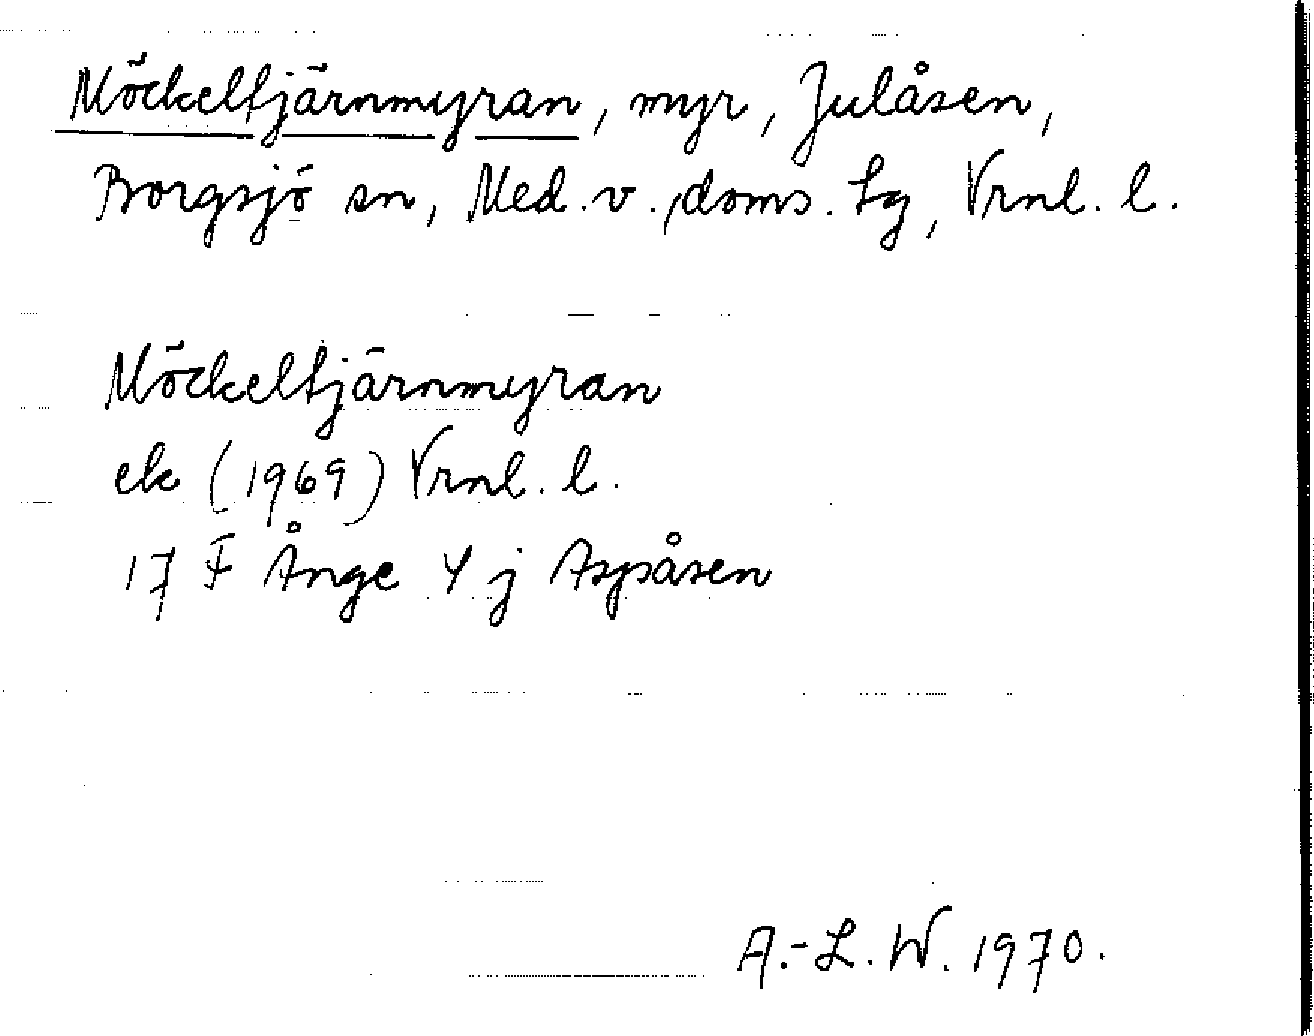 Möckeltjärnmyran, myr, Julåsen,
Borgsjö sn, Med. v., doms. tg, Vrnl. l.
Möckeltjärnmyran
ek (1969) Vrnl. l.
17 F Ånge 4 j Aspåsen
A.-L. W. 1970.